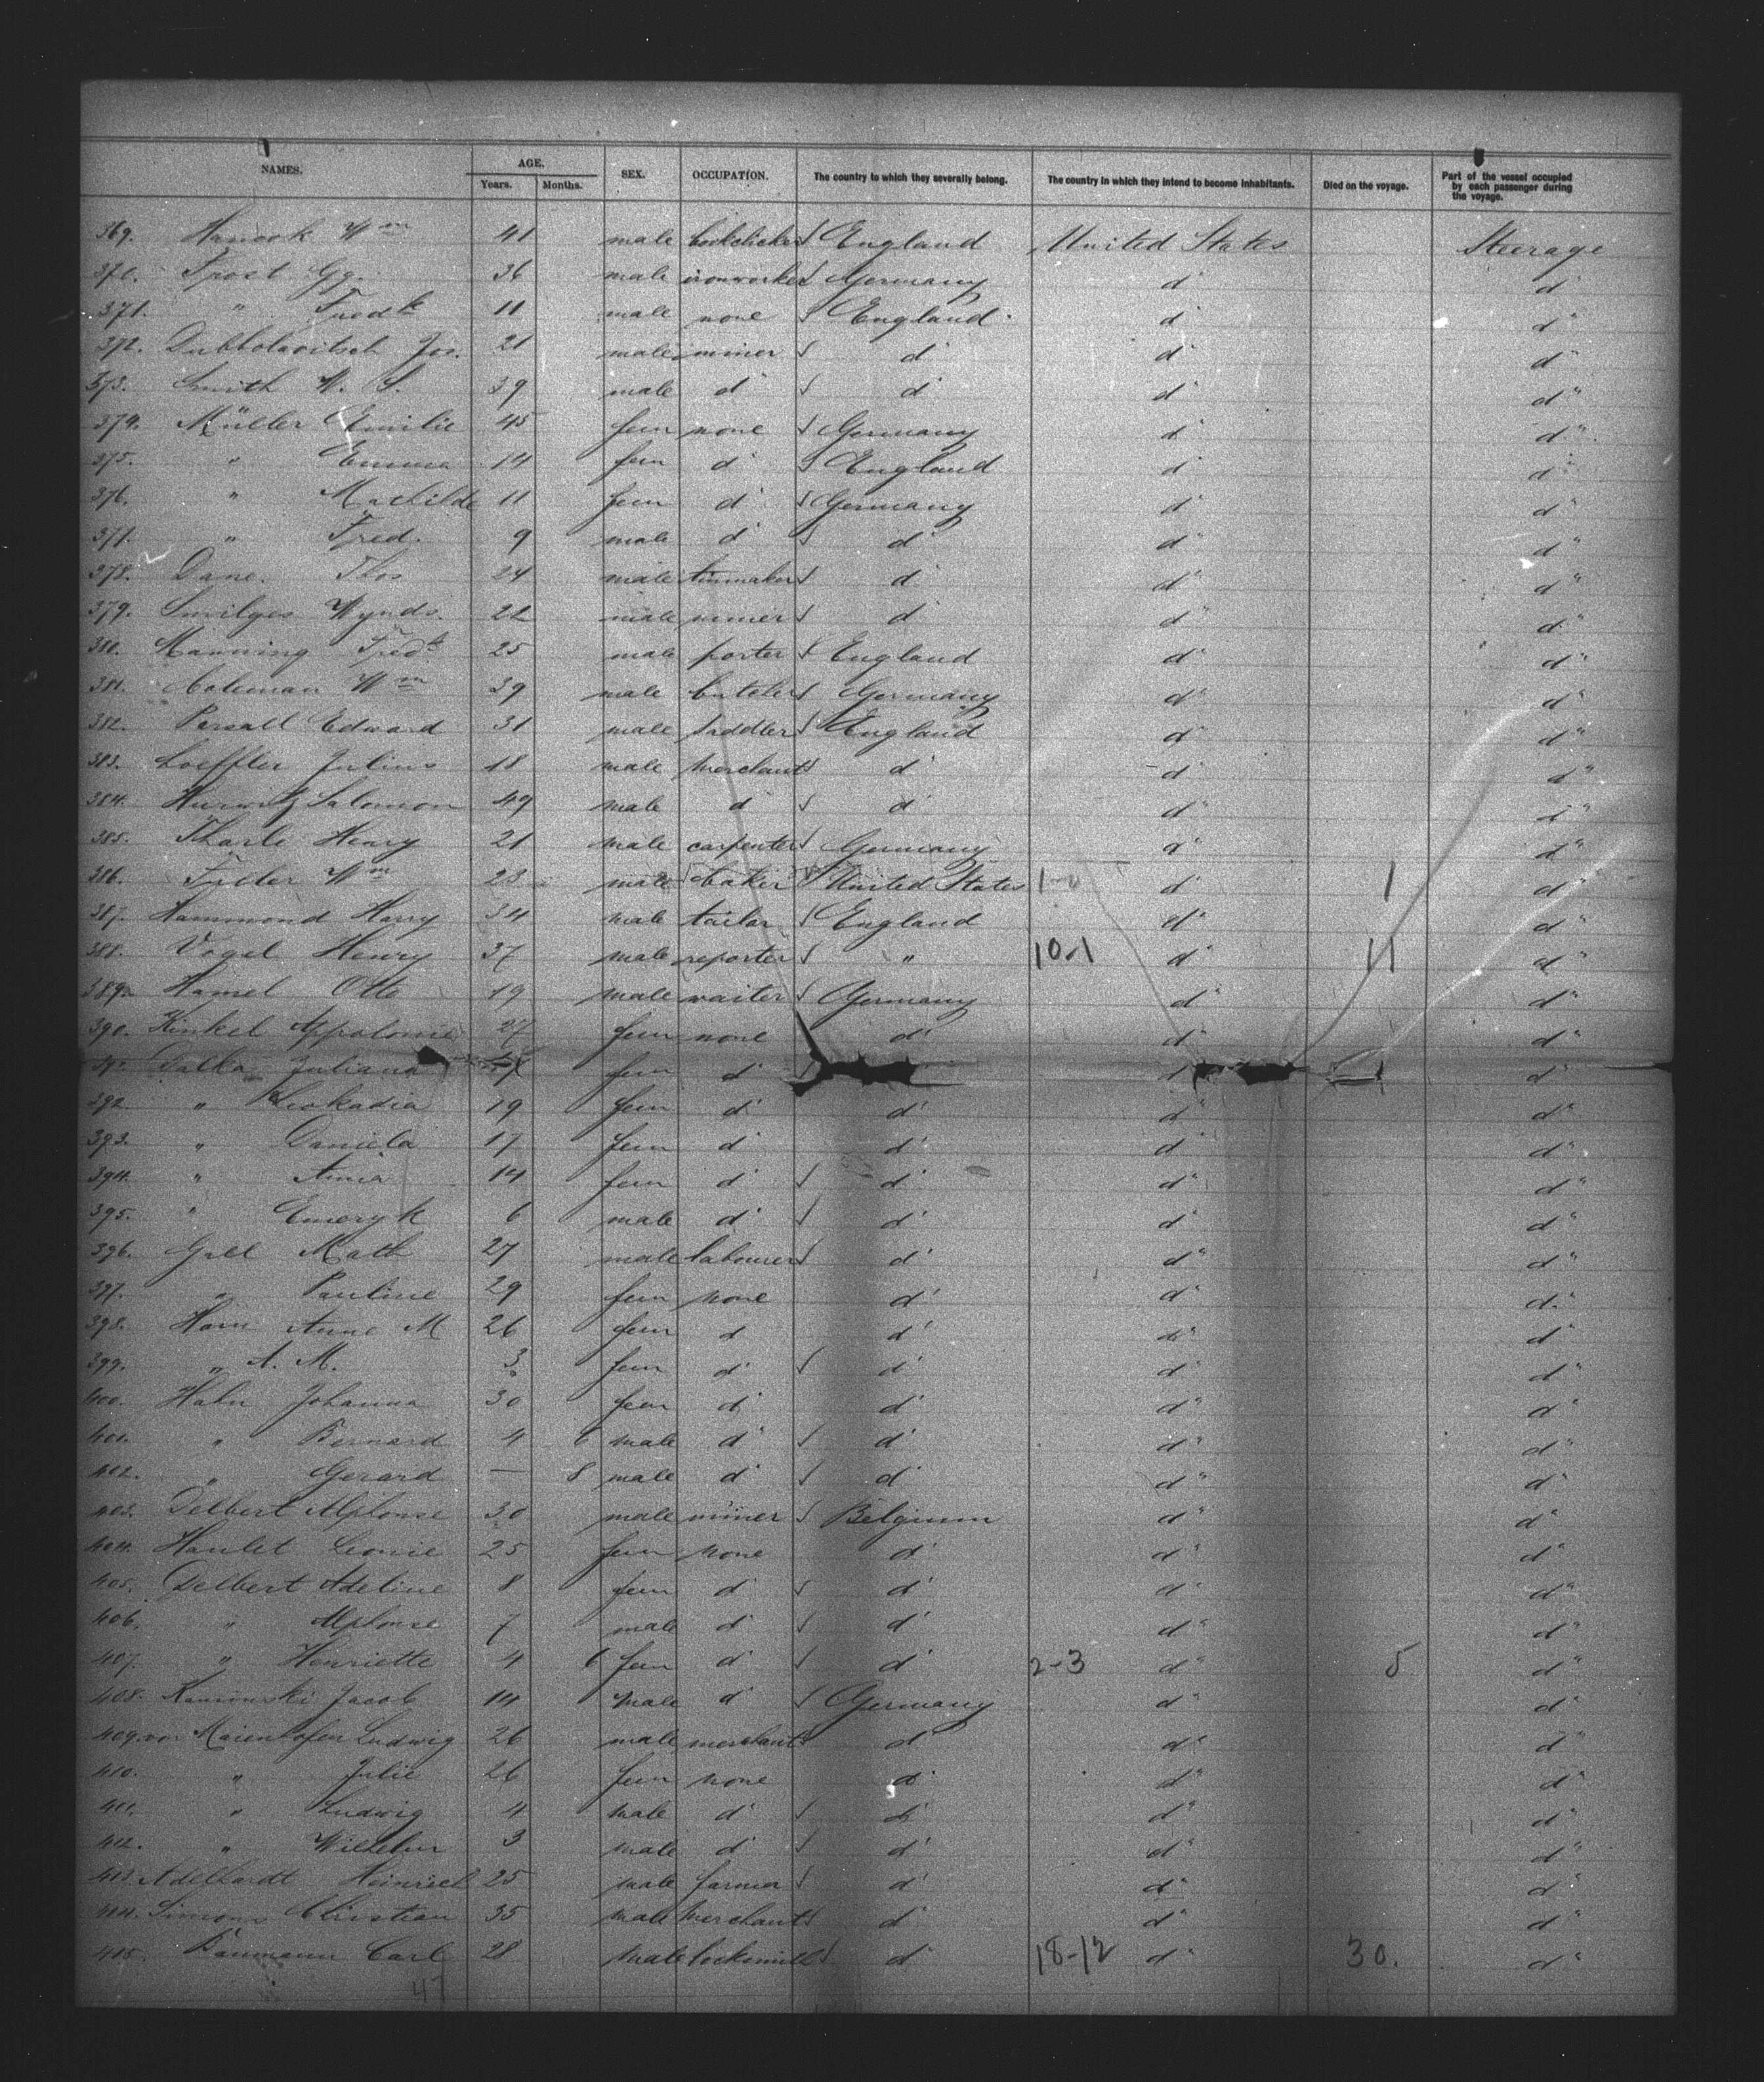 NAMES. AGE. Years. Months. SEX. OCCUPATION. The country to which they severally belong. The country in which they intend to become inhabitants. Died on the voyage. Part of the vessel occupied by each passenger during the voyage.
369. Hancock Wm 41 male England United States Steerage
370. Frost Gg. 36 male ironworker Germany do do
371. " Fredk 11 male none England do do
372. Jos. 21 male miner do do do
373. Smith W. S. 39 male do do do do
374. Müller Emilie 45 fem none Germany do do
375. " Emma 14 fem do England do do
376. " Mathilde 11 fem do Germany do do
377. " Fred. 9 male do do do do
378. Dane. Thos 24 male do do do
379. 22 male miner do do do
380. Manning Fredk 25 male porter England do do
381. Coleman Wm 39 male butcher Germany do do
382. Persall Edward 31 male saddler England do do
383. Loeffler Julius 18 male merchant do do do
384. Hurwitz Salomon 49 male do do do do
385. Tharle Henry 21 male carpenter Germany do do
386. Wm 23 male baker United States 1-0 do 1 do
387. Hammond Harry 34 male tailor England do do
388. Vogel Henry 37 male reporter " 10-1 do 11 do
389. Hamel Otto 19 male waiter Germany do do
390. Kinkel Appolonie 27 fem none do do do
Juliana fem do do do
392. " Leokadia 19 fem do do do do
393. " Daniela 17 fem do do do do
394. " Anna 14 fem do do do do
395. " Emeryk 6 male do do do do
396. Gall Math 27 male labourer do do do
397. " Pauline 29 fem none do do do
398. Horn Anna M 26 fem do do do do
399. " A. M. 3 fem do do do do
400. Hahn Johanna 30 fem do do do do
401. " Bernard 4 6 male do do do do
402. " Gerard — 8 male do do do do
403. Delbert Alphonse 30 male miner Belgium do do
404. Hanlet Leonie 25 fem none do do do
405. Delbert Adeline 8 fem do do do do
406. " Alphonse 7 male do do do do
407. " Henriette 4 6 fem do do 2-3 do 5 do
408. Kaminski Jacob 14 male do Germany do do
409. von Maienhofen Ludwig 26 male merchant do do do
410. " Julie 26 fem none do do do
411. " Ludwig 4 male do do do do
412. " Wilhelm 3 male do do do do
413. Adelhardt Heinrich 25 male farmer do do do
414. Simons Christian 35 male merchant do do do
415. Baumann Carl 28 male locksmith do 18-12 do 30. do
47